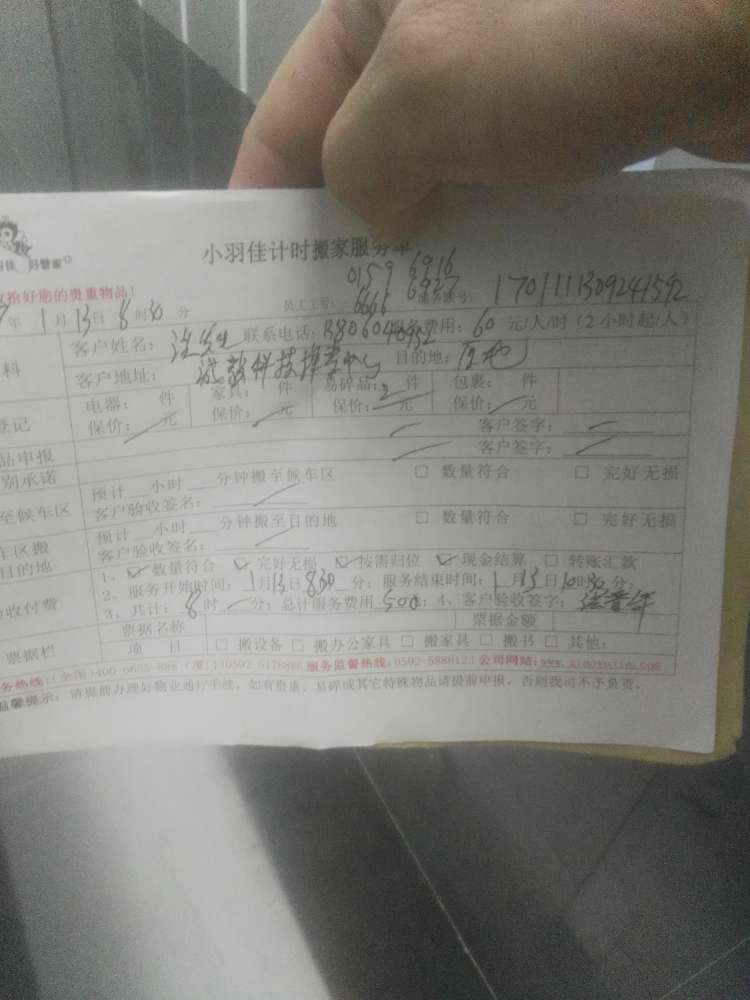 好管家
小羽佳计时搬家服务单
拾好您的贵重物品!
0159 6916
员工工号: 6666 6927 1701111309241592
年 1月13日8时30分
客户姓名: 联系电话: 服务费用: 60 元/人/时(2小时起/人)
料
客户地址: 目的地:
登记
电器: 件 家具: 件 易碎品: 2 件 包裹: 件
保价: 元 保价: 元 保价: 元 保价: 元
客户签字:
品申报 客户签字:
别承诺
预计 小时 分钟搬至候车区 □ 数量符合 □ 完好无损
至候车区 客户验收签名:
预计 小时 分钟搬至目的地 □ 数量符合 □ 完好无损
车区搬
目的地 客户验收签名:
1、 数量符合 完好无损 按需归位 现金结算 □ 转账汇款
2、服务开始时间: 1月13日8时30分; 服务结束时间: 1月13日10时30分;
收付费 3、共计: 8时 分; 总计服务费用 500; 4、客户验收签字:
票据名称 票据金额
票据栏 项 目 □ 搬设备 □ 搬办公家具 □ 搬家具 □ 搬书 □ 其他:
务热线:(全国)400-6655-888 (厦门)0592-5178888 服务监督热线:0592-5888123 公司网站:www.xiaoyujia.com
温馨提示: 请提前办理好物业通行手续, 如有贵重、易碎或其它特殊物品请提前申报, 否则我司不予负责。